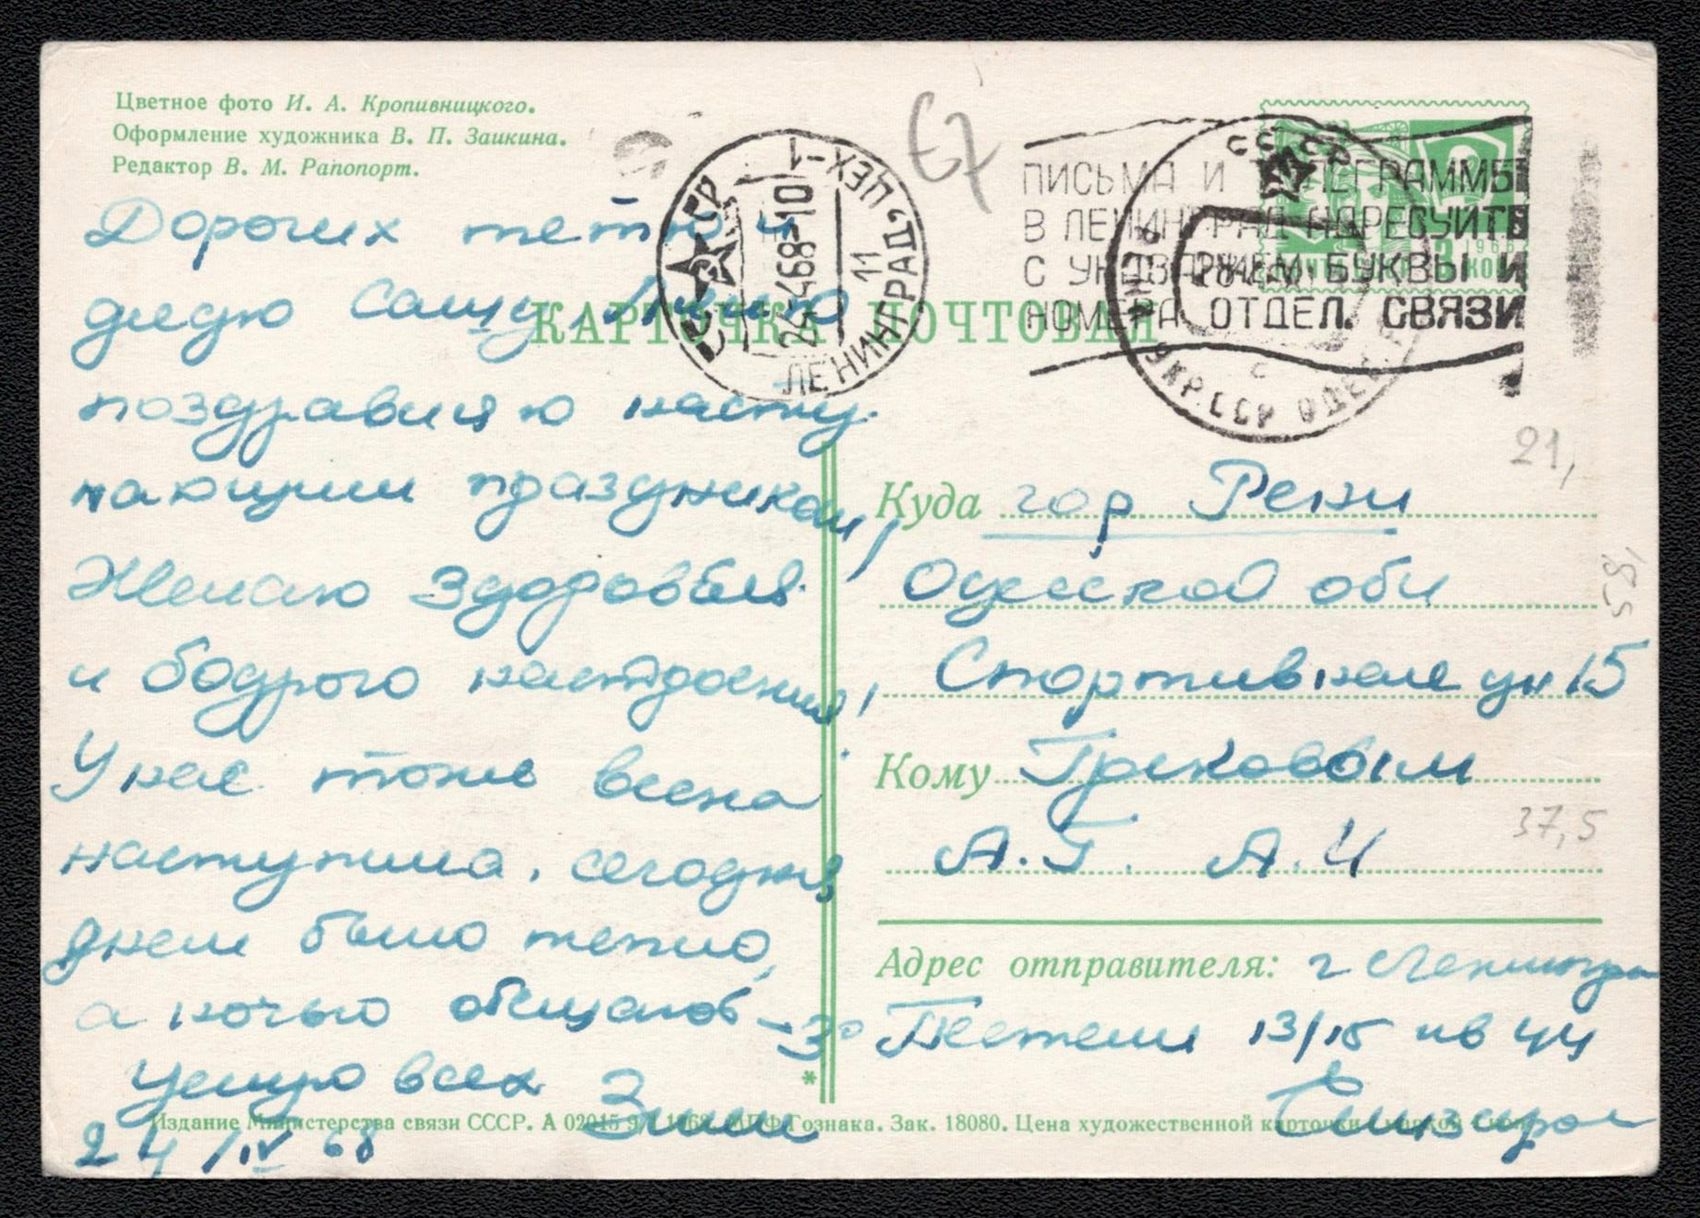 Цветное фото И. А. Кропивницкого.
Оформление художника В. П. Заикина.
Редактор В. М. Рапопорт.
67
СССР
24-468-10
11
ЛЕНИНГРАД ЦЕХ-1
ПИСЬМА И ТЕЛЕГРАММЫ
В ЛЕНИНГРАД АДРЕСУЙТЕ
С УКАЗАНИЕМ БУКВЫ И
НОМЕРА ОТДЕЛ. СВЯЗИ
СССР
УКР.ССР ОДЕС.
1966
КАРТОЧКА ПОЧТОВАЯ
Дорогих тетю и
дядю Сашу, Аню
поздравляю насту-
пающими праздниками,
Желаю здоровья
и бодрого настроения,
У нас тоже весна
наступила, сегодня
днем было тепло,
а ночью обещают -3°
Целую всех Зина
24/IV 68
21,
Куда гор Рени
Одесской обл
Спортивная ул 15
Кому Грековым
А.Г. А.И
37,5
Адрес отправителя: г Ленингра
13/15 кв 44
*
Издание Министерства связи СССР. А 02015 1968. МПФ Гознака. Зак. 18080. Цена художественной карточки с маркой 4 коп.